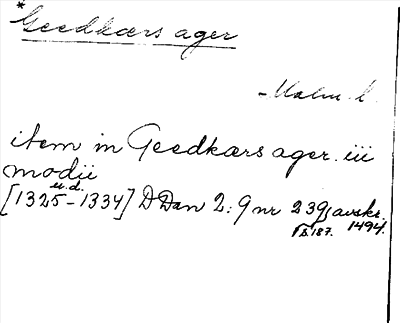 *Geedkærs ager
- Malm. l.
item in Geedkærs ager. iii
modii
u.d.
[1325-1334] DDan 2:9 nr 239, avskr.
1494.
B 187.